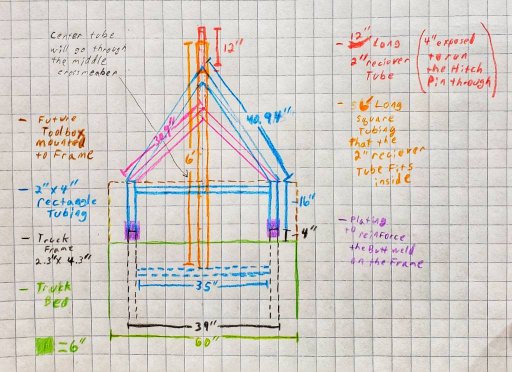 Center tube
will go through
the middle
crossmember
12"
- 12" Long
2" reciever
Tube
(4" exposed
to run
the Hitch
Pin through)
- Future
Toolbox
mounted
to Frame
- 2"x4"
rectangle
Tubing
- Truck
Frame
2.3"x 4.3"
- Truck
Bed
= 6"
40.94"
6'
16"
4"
35"
39"
60"
- 6' Long
square
Tubing
that the
2" reciever
Tube Fits
inside
- Plating
to reinforce
the Butt weld
on the Frame